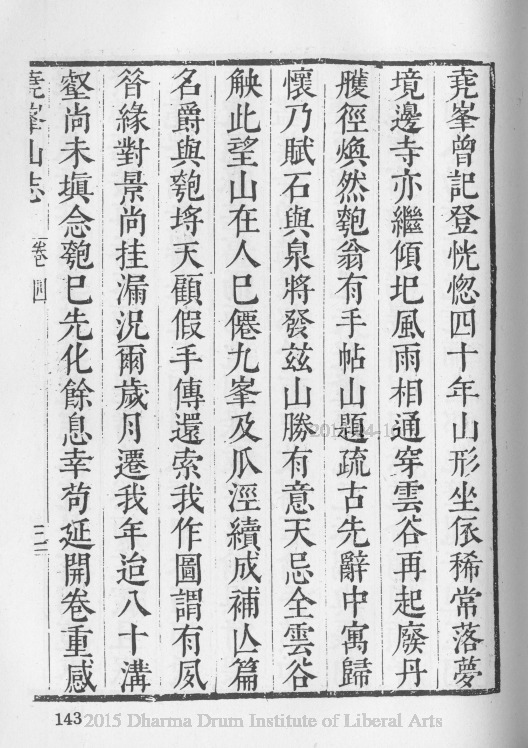 堯峯曾記登恍惚四十年山形坐依稀常落夢
境邊寺亦繼傾圯風雨相通穿雲谷再起廢丹
雘徑煥然匏翁有手帖山題疏古先辭中寓歸
懷乃賦石與泉將發兹山勝有意天忌全雲谷
觖此望山在人已僊九峯及瓜涇續成補亾篇
名爵與匏埒天顧假手傳還索我作圖謂有夙
咎緣對景尚挂漏況爾歲月遷我年迨八十溝
壑尚未塡念匏已先化餘息幸苟延開卷重感
堯峯山志
卷四
三
143
2015 Dharma Drum Institute of Liberal Arts